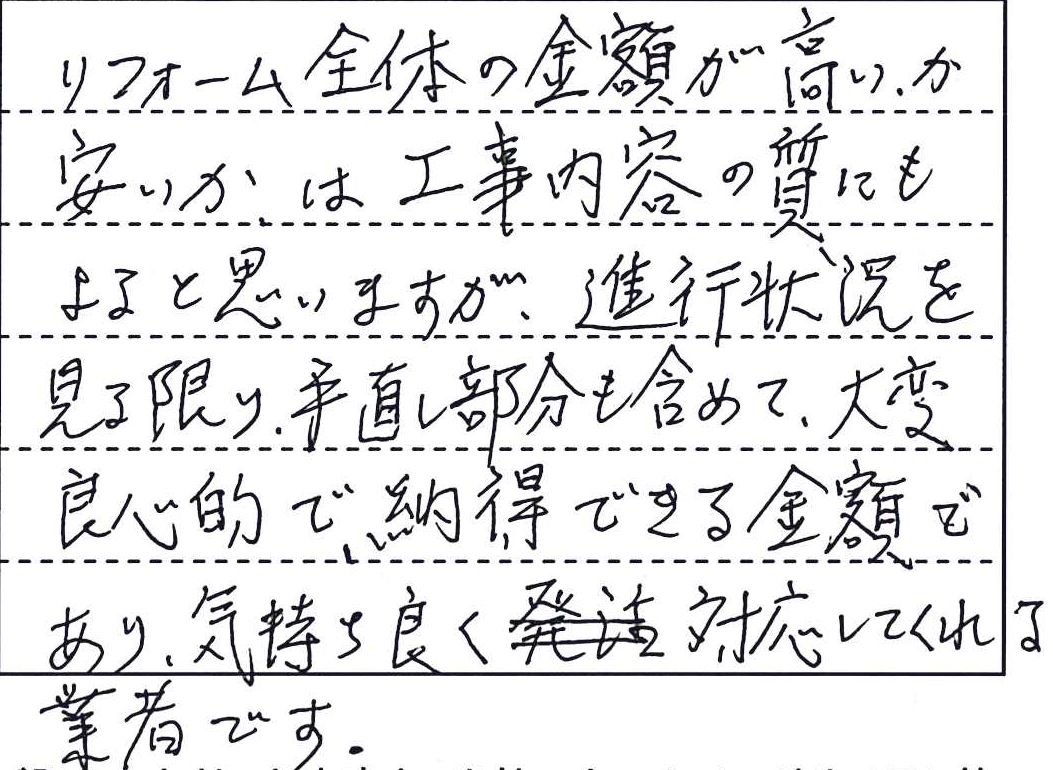 リフォーム全体の金額が高い、か
安いか、は工事内容の質にも
よると思いますが、進行状況を
見る限り、手直し部分も含めて、大変
良心的で、納得できる金額で
あり、気持ち良く対応してくれる
業者です.